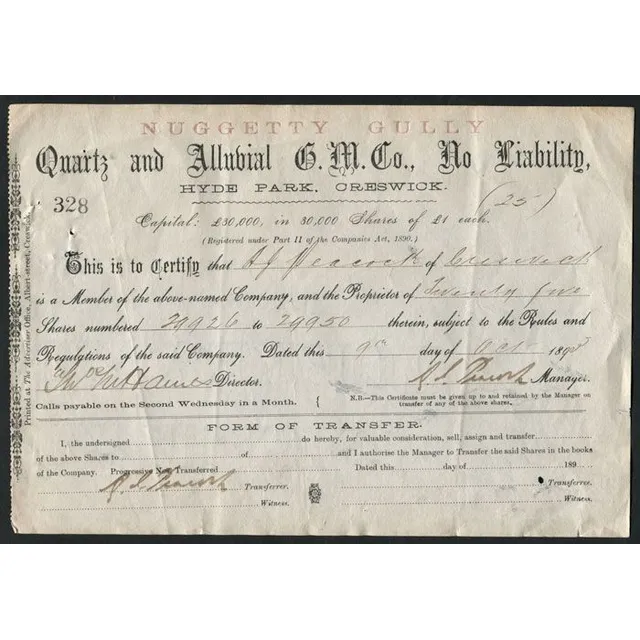 NUGGETTY GULLY
Quartz and Alluvial G. M. Co., No Liability,
HYDE PARK, CRESWICK.
328
(25)
Capital: £30,000, in 30,000 Shares of £1 each.
(Registered under Part II of the Companies Act, 1890.)
This is to Certify that A J Peacock of Creswick
is a Member of the above-named Company, and the Proprietor of Twenty five
Shares numbered 29926 to 29950 therein, subject to the Rules and
Regulations of the said Company. Dated this 9th day of Oct 189
Director. A. J. Peacock Manager.
Calls payable on the Second Wednesday in a Month. { N.B.—This Certificate must be given up to and retained by the Manager on
transfer of any of the above shares.
FORM OF TRANSFER.
I, the undersigned do hereby, for valuable consideration, sell, assign and transfer
of the above Shares to of and I authorise the Manager to Transfer the said Shares in the books
of the Company. Progressive No. Transferred Dated this day of 189
A. J. Peacock Transferrer. Transferee.
Witness. Witness.
Printed at The Advertiser Office, Albert-street, Creswick.